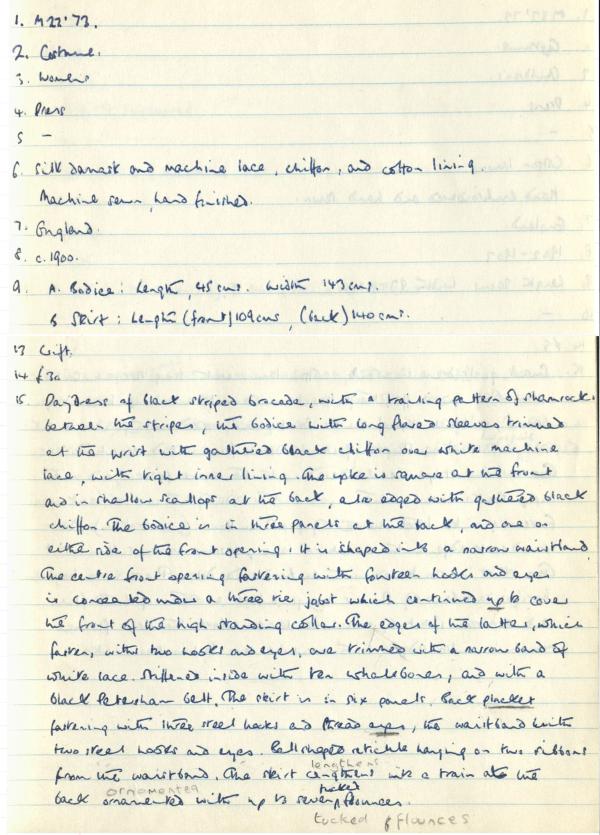 1. M22'73.
2. Costume.
3. Womens
4. Dress
5 –
6. Silk damask and machine lace, chiffon, and cotton lining.
Machine sewn, hand finished.
7. England.
8. c.1900.
9. A. Bodice: Length, 45 cms. Width 143 cms.
B Skirt: Length (front) 109 cms, (back) 140 cms.
13 Gift.
14 £30
15. Daydress of black striped brocade, with a trailing pattern of shamrock
between the stripes, the bodice with long flared sleeves trimmed
at the wrist with gathered black chiffon over white machine
lace, with tight inner lining. The yoke is square at the front
and in shallow scallops at the back, also edged with gathered black
chiffon. The bodice is in three panels at the back, and one on
either side of the front opening. It is shaped into a narrow waistband.
The centre front opening fastening with fourteen hooks and eyes
is concealed under a three tier jabot which continued up to cover
the front of the high standing collar. The edges of the latter, which
fasten, with two hooks and eyes, are trimmed with a narrow band of
white lace. Stiffened inside with ten whalebones, and with a
black Petersham belt. The skirt is in six panels. Back placket
fastening with three steel hooks and thread eyes, the waistband with
two steel hooks and eyes. Bell shaped reticule hanging on two ribbons
lengthens
from the waistband. The skirt lengthens into a train at the
ornamented tucked
back ornamented with up to seven flounces.
tucked flounces